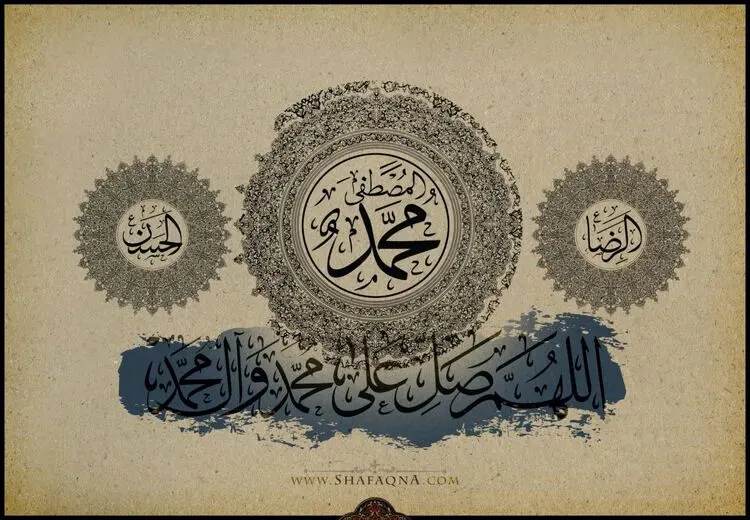 المصطفى
محمد
الرضا
الحسن
اللهم صل على محمد وآل محمد
www.ShafaqnA.com